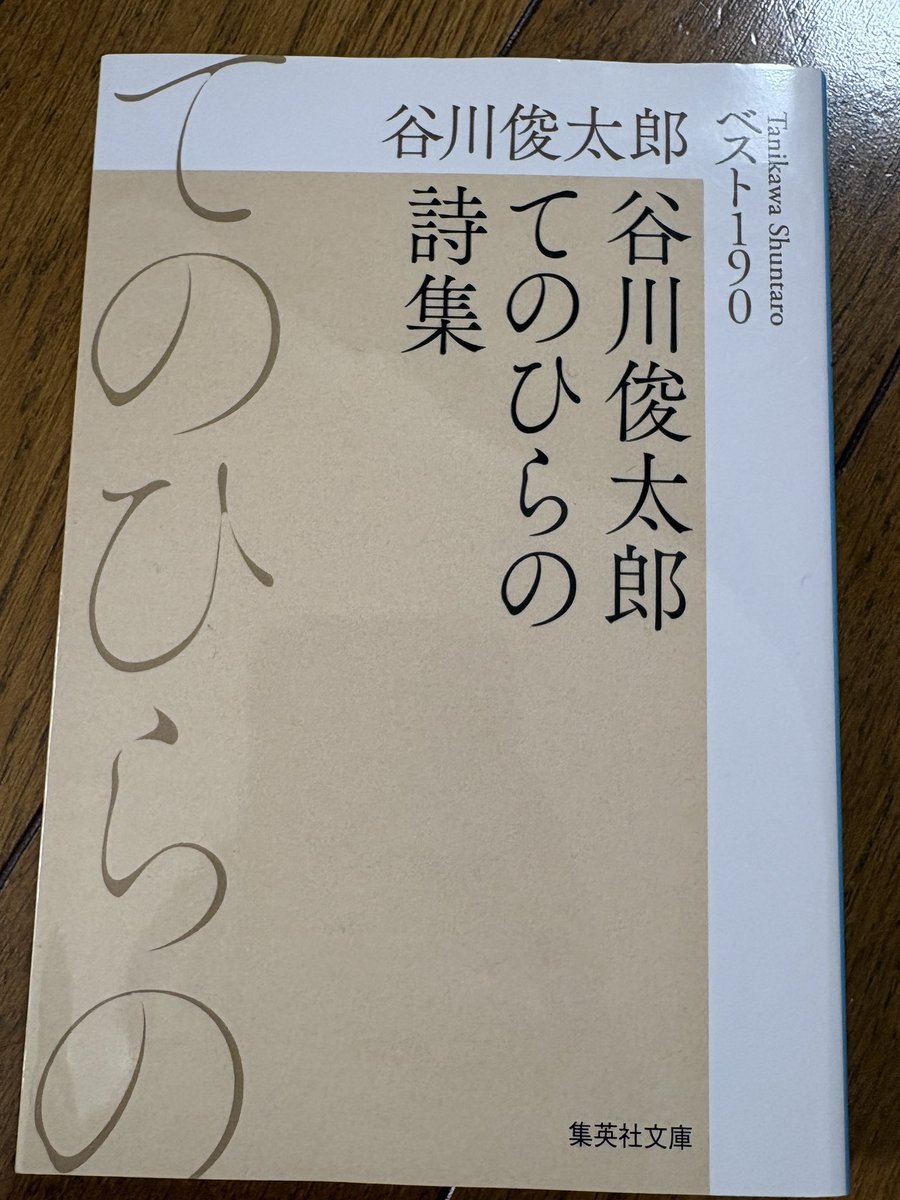 谷川俊太郎
ベスト190
Tanikawa Shuntaro
谷川俊太郎
てのひらの
詩集
てのひらの
集英社文庫